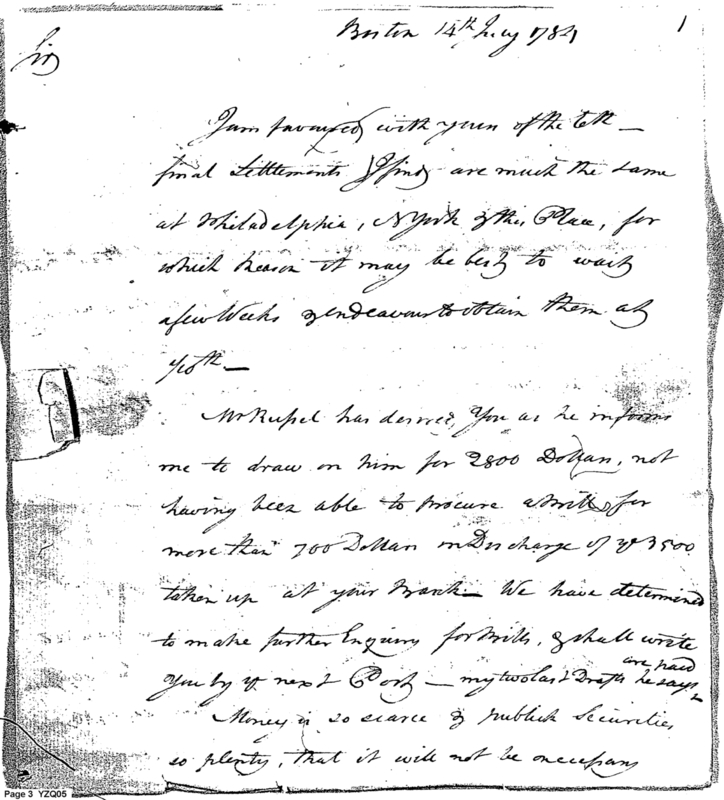 1
Boston 14th July 1784
Sir
I am favoured with yours of the 6th —
final Settlements I find are much the same
at Philadelphia, N York & this Place, for
which Reason it may be best to wait
a few Weeks & endeavour to obtain them at
Mr Russel has desired You as he informs
me to draw on him for 2800 Dollars, not
having been able to procure a Bill for
more than 700 Dollars in Discharge of ye 3500
taken up at your Bank — We have determined
to make further Enquiry for Bills, & shall write
You by ye next Post — my two last Drafts he says
are paid
Money is so scarce & publick Securities
so plenty, that it will not be necessary
Page 3 YZQ05